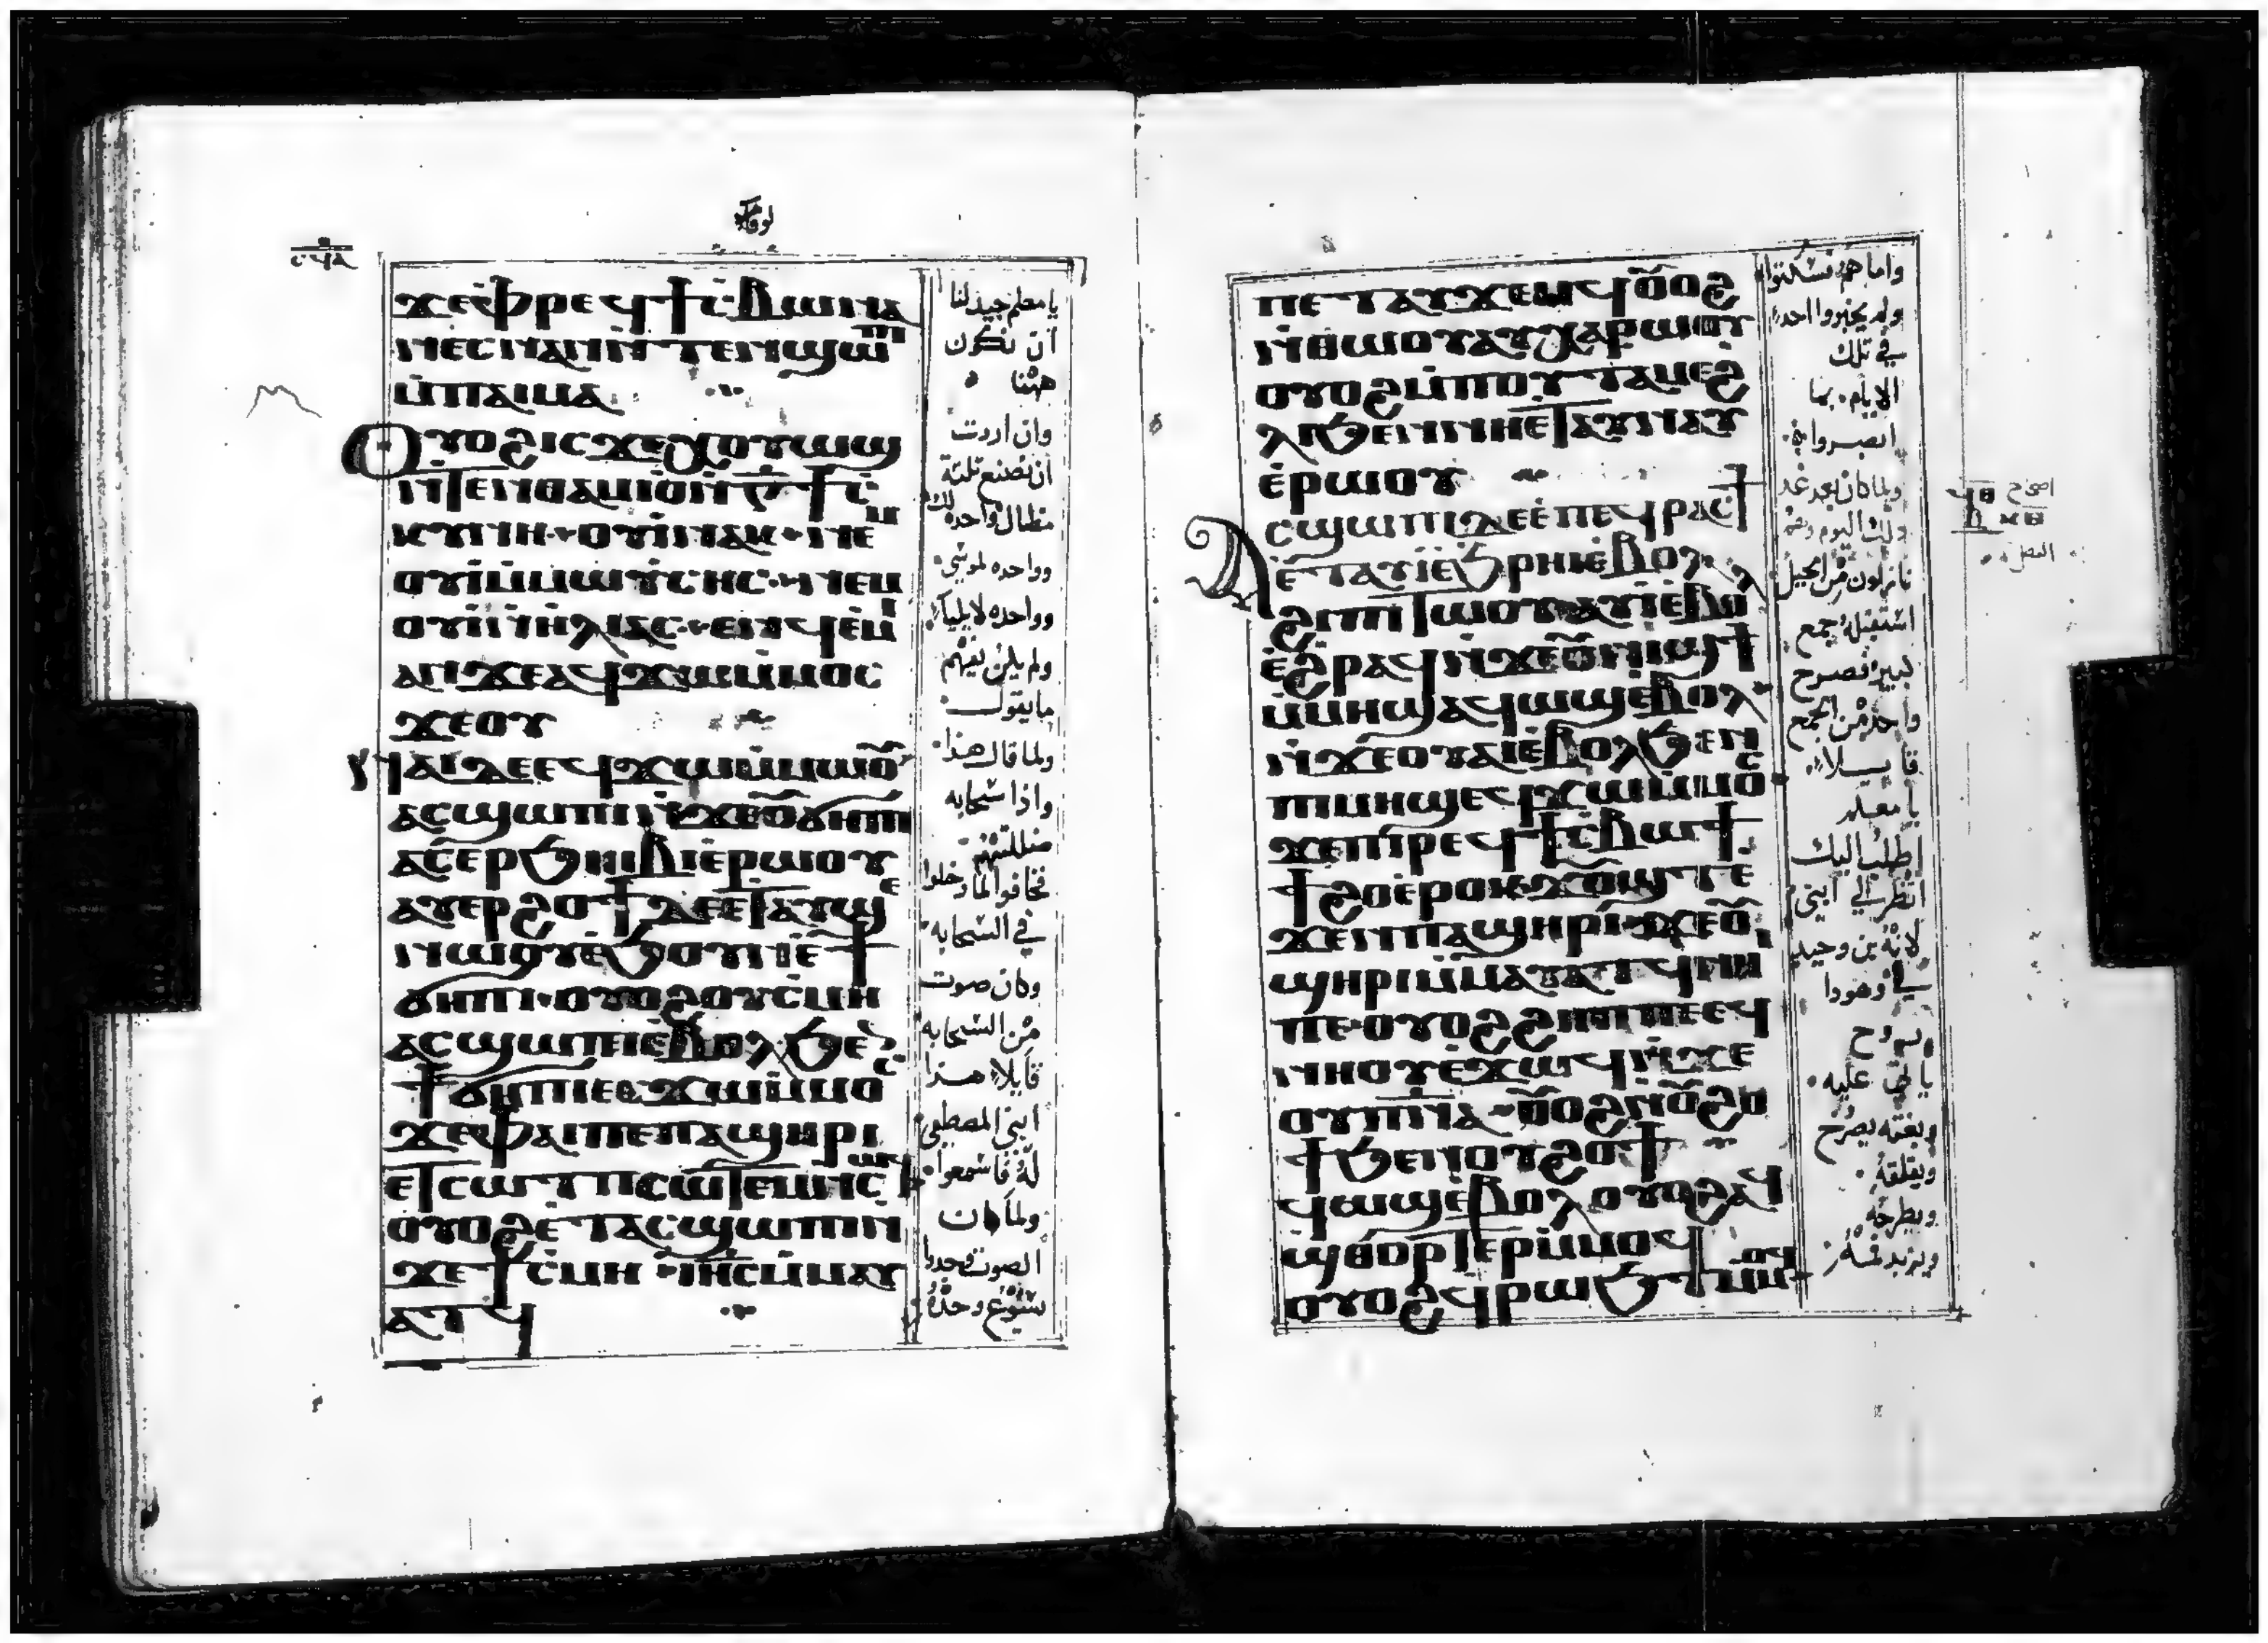 لوقا
ϫⲉⲫⲣⲉϥϯⲥⲃⲱⲛⲁ
ⲛⲉⲥⲛⲁⲛⲛⲧⲉⲛϣⲱⲡⲓ
ⲙⲡⲁⲓⲙⲁ
ⲟⲩⲟϩⲓⲥϫⲉⲭⲟⲩⲱϣ
ⲛⲧⲉⲛⲑⲁⲙⲓⲟⲛⲅϯⲥ
ⲕⲩⲛⲏⲟⲩⲓⲛⲁⲕⲛⲉⲙ
ⲟⲩⲓⲙⲙⲱⲩⲥⲏⲥⲛⲉⲙ
ⲟⲩⲓⲛⲏⲗⲓⲁⲥⲉⲛϥⲉⲙⲓ
ⲁⲛϫⲉⲁϥϫⲱⲙⲙⲟⲥ
ϫⲉⲟⲩ
ⲛⲁⲓⲇⲉⲉϥϫⲱⲙⲙⲱⲟⲩ
ⲁⲥϣⲱⲡⲓⲛϫⲉⲟⲩϭⲏⲡⲓ
ⲁⲥⲉⲣϧⲏⲓⲃⲓⲉⲣⲱⲟⲩ
ⲁⲩⲉⲣϩⲟϯⲇⲉⲉⲧⲁⲩϣⲉ
ⲛⲱⲟⲩⲉϧⲟⲩⲛⲉϯ
ϭⲏⲡⲓⲟⲩⲟϩⲟⲩⲥⲙⲏ
ⲁⲥϣⲱⲡⲓⲉⲃⲟⲗϧⲉⲛ
ϯϭⲏⲡⲓⲉⲥϫⲱⲙⲙⲟⲥ
ϫⲉⲫⲁⲓⲡⲉⲡⲁϣⲏⲣⲓ
ⲉⲧⲥⲱⲧⲡⲥⲱⲧⲉⲙⲛⲥⲱϥ
ⲟⲩⲟϩⲉⲧⲁⲥϣⲱⲡⲓⲛ
ϫⲉϯⲥⲙⲏⲓⲏⲥⲙⲙⲁⲩ
ⲁⲧϥ
يا معلم جيد لنا
ان نكون
ههنا
وان اردت
ان نصنع ثلثة
مظال واحده لك
وواحده لموسي
وواحده لايليا
ولم يكن يفهم
ما يقول
ولما قال هذا
واذا سحابه
ضللتهم
فخافوا لما دخلوا
في السحابه
وكان صوت
من السحابه
قايلا هذا
ابني المصطفي
له فاسمعوا
ولما كان
الصوت وجدوا
يسوع وحده
ⲡⲉⲧⲁⲩϫⲉⲙϥⲟⲩⲟϩ
ⲛⲑⲱⲟⲩⲁⲩⲭⲁⲣⲱⲟⲩ
ⲟⲩⲟϩⲙⲡⲟⲩⲧⲁⲙⲉϩ
ⲗⲓϧⲉⲛⲛⲏⲉⲧⲁⲩⲛⲁⲩ
ⲉⲣⲱⲟⲩ
ⲁⲥϣⲱⲡⲓⲇⲉⲉⲡⲉϥⲣⲁⲥϯ
ⲉⲧⲁⲩⲓⲉϧⲣⲏⲓⲉⲃⲟⲗ
ϩⲓⲡⲓⲧⲱⲟⲩⲁⲩⲓⲉⲃⲟⲗ
ⲉϩⲣⲁϥⲛϫⲉⲟⲩⲛⲓϣϯ
ⲙⲙⲏϣⲁϥⲱϣⲉⲃⲟⲗ
ⲛϫⲉⲟⲩⲁⲓⲉⲃⲟⲗϧⲉⲛ
ⲡⲓⲙⲏϣⲉϥϫⲱⲙⲙⲟⲥ
ϫⲉⲡⲓⲣⲉϥϯⲥⲃⲱϯ
ϯϩⲟⲉⲣⲟⲕϫⲟⲩϣⲧⲉ
ϫⲉⲛⲡⲁϣⲏⲣⲓϫⲉⲟⲩ
ϣⲏⲣⲓⲙⲙⲁⲩⲁⲧϥⲛⲏⲓ
ⲡⲉⲟⲩⲟϩϩⲏⲡⲡⲉⲉϥ
ⲛⲏⲟⲩⲉϫⲱϥⲛϫⲉ
ⲟⲩⲡⲛⲁⲟⲩⲟϩⲛⲟⲩϩⲟ
ϯϧⲉⲛⲟⲩϩⲟϯ
ϥⲱϣⲉⲃⲟⲗⲟⲩⲟϩⲁϥ
ϣⲑⲟⲣⲧⲉⲣⲙⲙⲟϥ
ⲟⲩⲟϩϥⲣⲱϧⲧⲙⲙⲟϥ
واما هم فسكتوا
ولم يخبروا احدا
في تلك
الايام بما
ابصروا
ولما كان بعد غد
ذلك اليوم وهم
نازلون من الجبل
استقبله جمع
كبير فصرخ
واحد من الجمع
قايلا
يا معلم
اطلب اليك
انظر الي ابني
لانه ابن وحيد
لي وهوذا
روح
ياتي عليه
وبغته يصرخ
ويقلقه
ويطرحه
ويزبد
اصحاح
الفصل